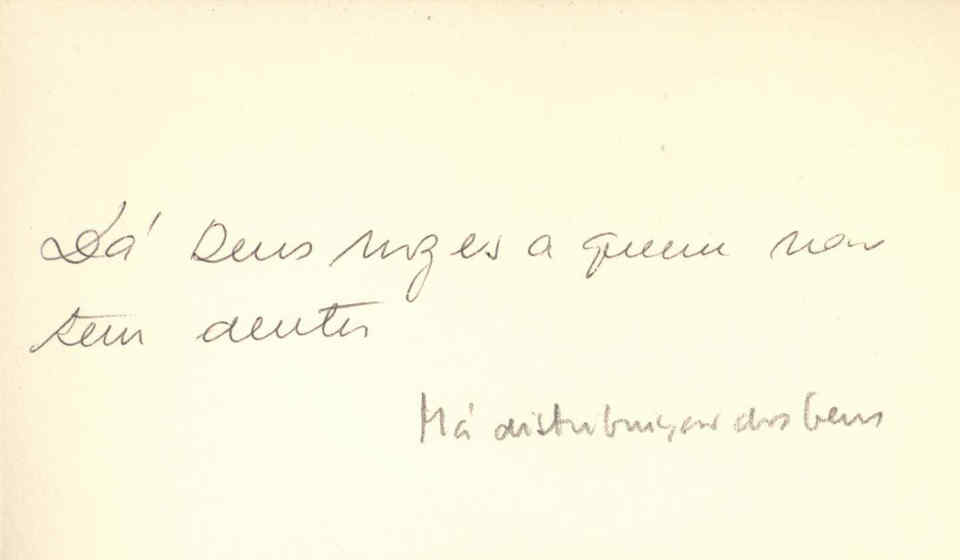 Dá Deus nozes a quem não
tem dentes
Má distribuição dos bens